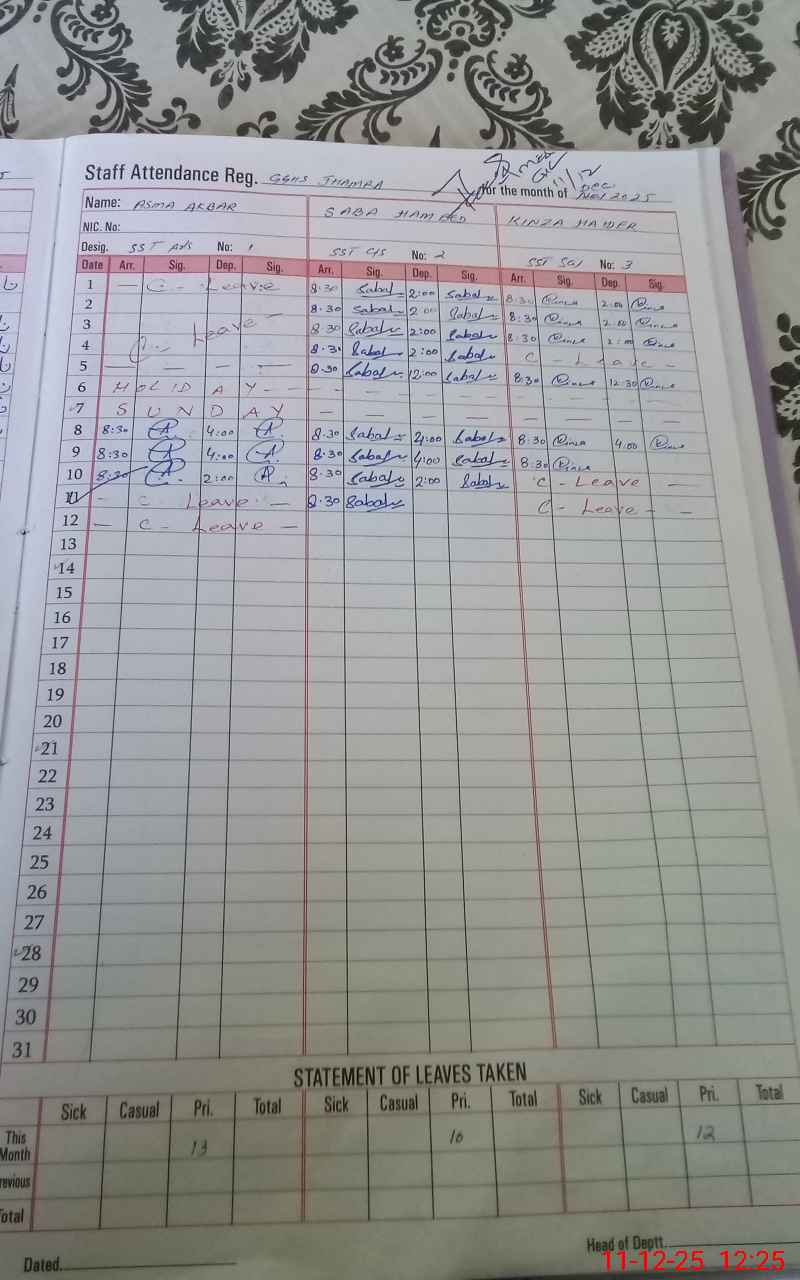 Staff Attendance Reg. GGHS JHAMRA for the month of Dec 2025
11/12
Name: ASMA AKBAR SABA HAMEED KINZA HAIDER
NIC. No:
Desig. SST Arts No: 1 SST C/S No: 2 SST Sci No: 3
Date Arr. Sig. Dep. Sig. Arr. Sig. Dep. Sig. Arr. Sig. Dep. Sig.
1 — C - Leave 8:30 Saba 2:00 Saba 8:30 2:00
2 8:30 Saba 2:00 Saba 8:30 2:00
3 C - Leave — 8:30 Saba 2:00 Saba 8:30 2:00
4 8:30 Saba 2:00 Saba C - Leave -
5 — — — — 8:30 Saba 12:00 Saba 8:30 12:30
6 HOLIDAY - - - - -
7 SUNDAY — — — — — — —
8 8:30 A 4:00 A 8:30 Saba 4:00 Saba 8:30 4:00
9 8:30 A 4:00 A 8:30 Saba 4:00 Saba 8:30
10 8:30 A 2:00 A 8:30 Saba 2:00 Saba C - Leave —
11 - C Leave - — 8:30 Saba C - Leave - -
12 — C - Leave —
13
14
15
16
17
18
19
20
21
22
23
24
25
26
27
28
29
30
31
STATEMENT OF LEAVES TAKEN
Sick Casual Pri. Total Sick Casual Pri. Total Sick Casual Pri. Total
This Month 13 10 12
revious
otal
Dated. Head of Deptt.
11-12-25 12:25